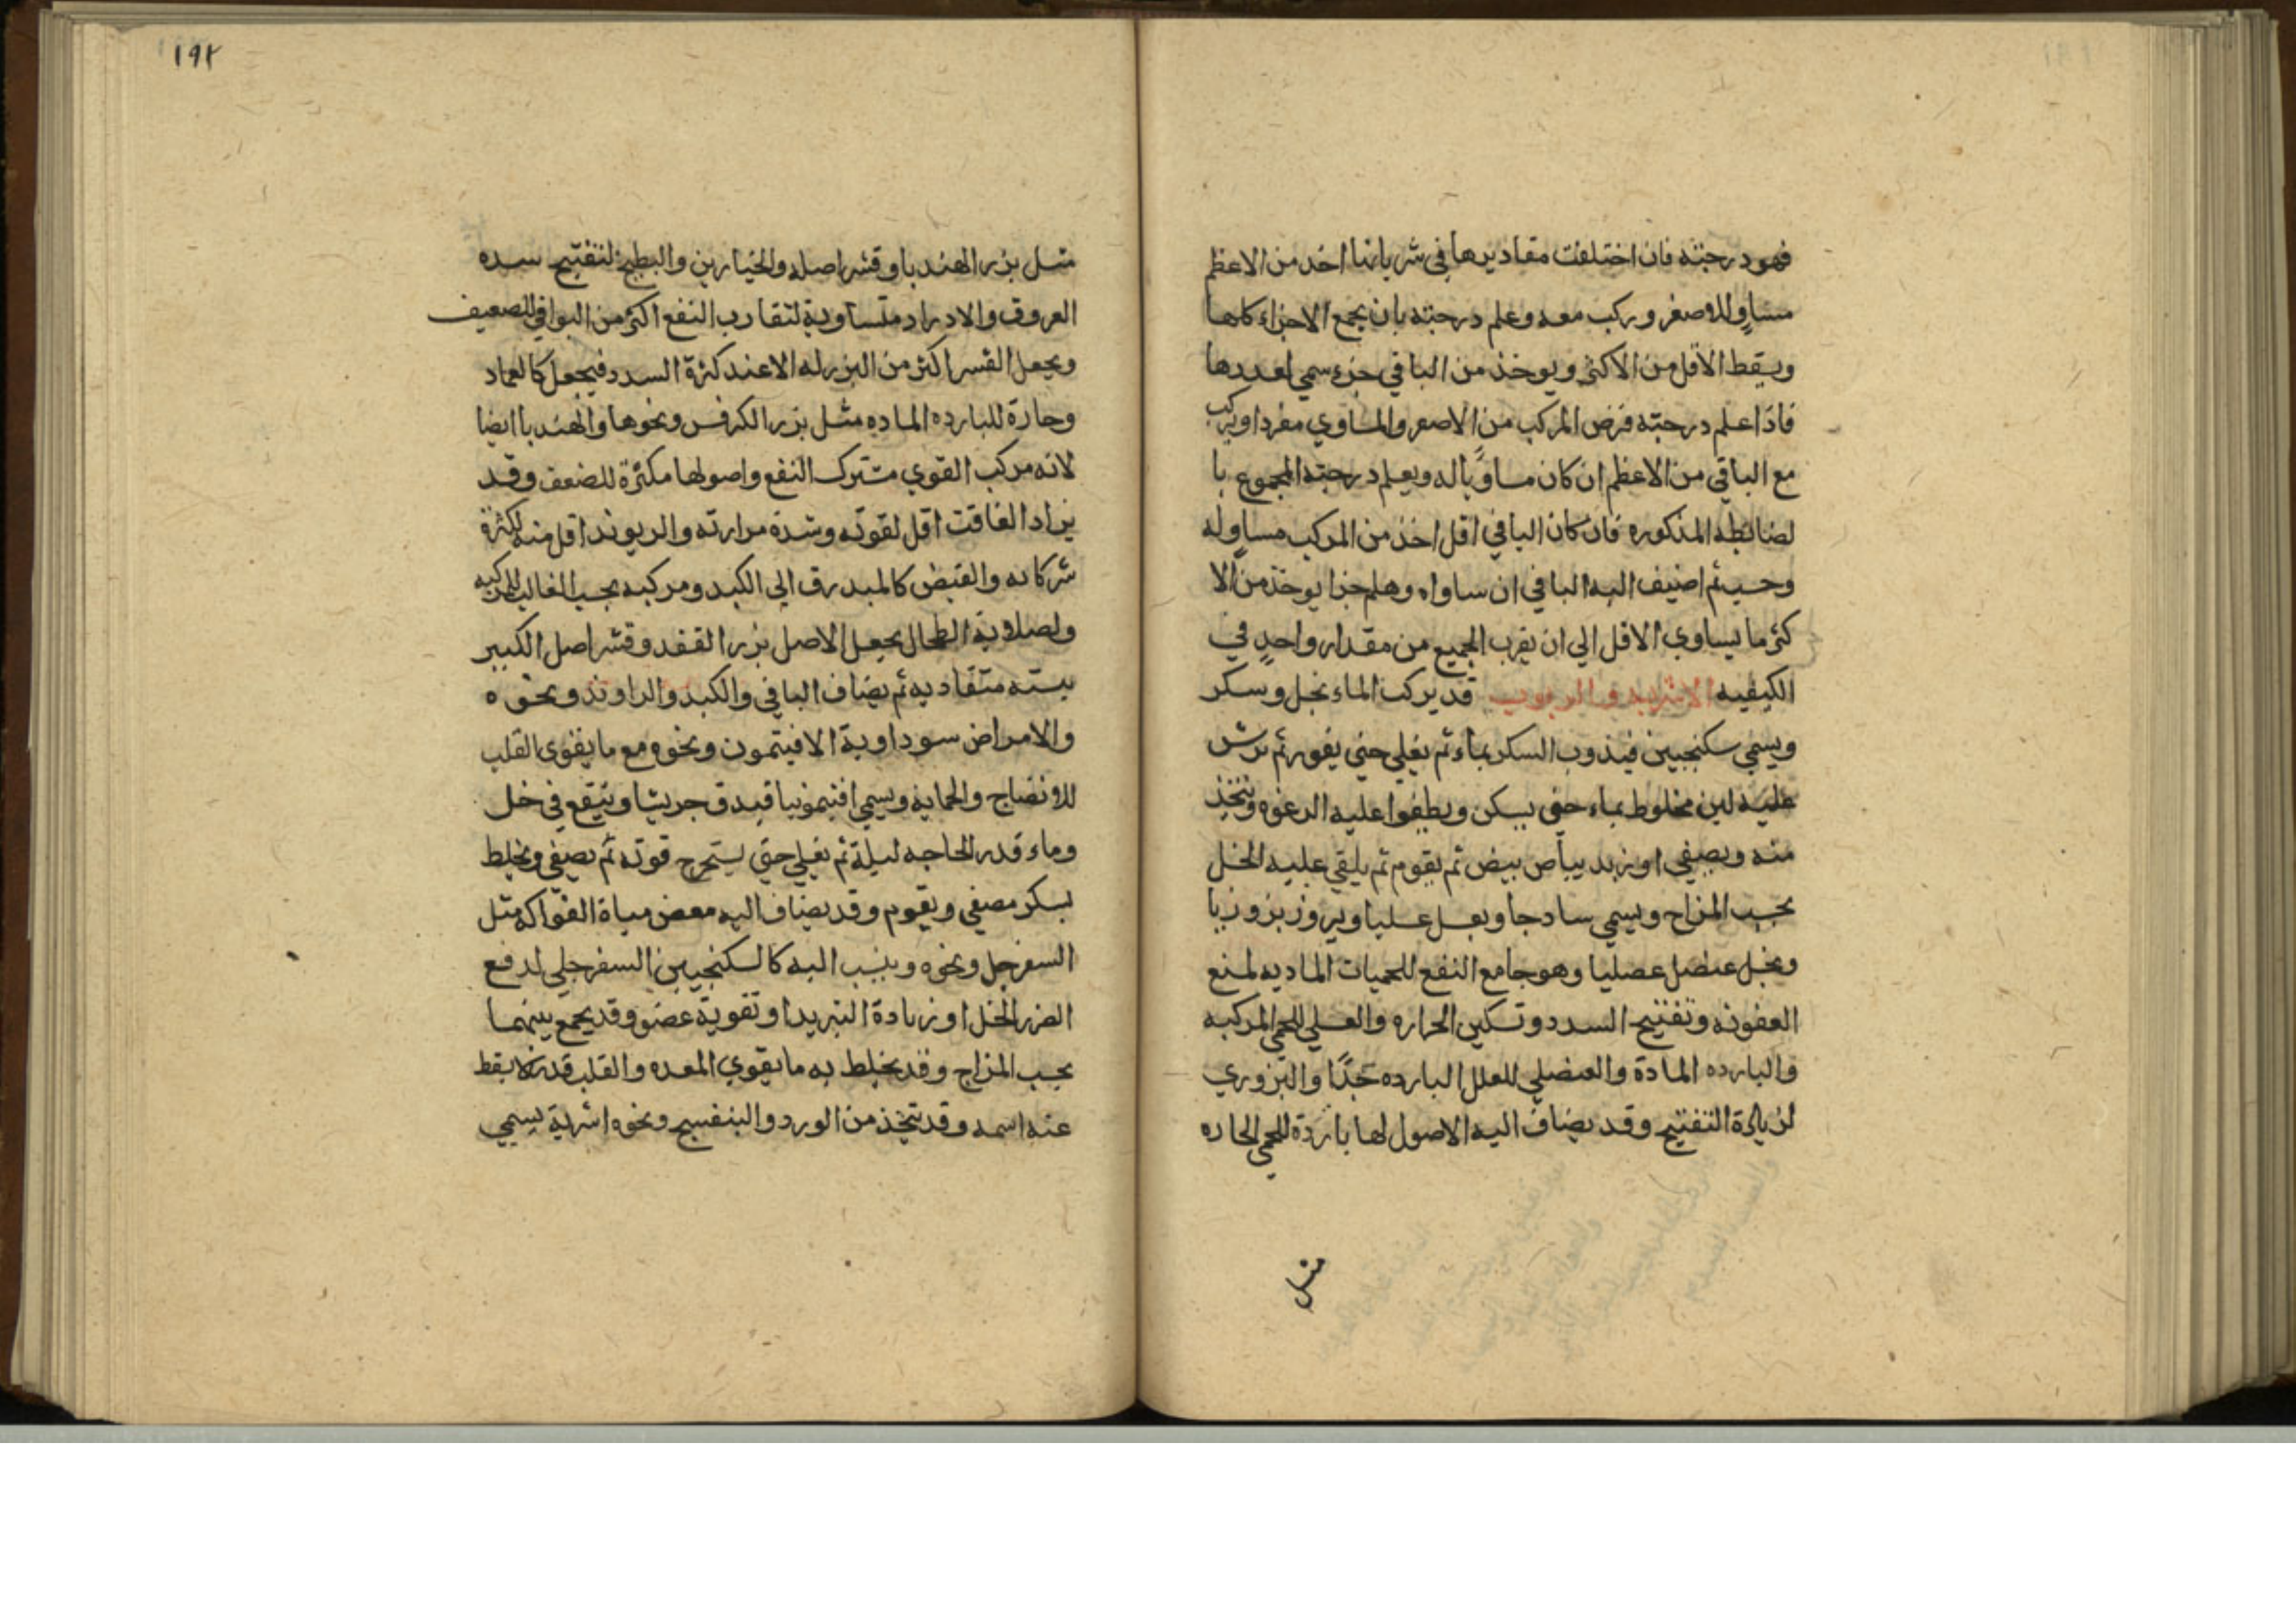 فهو درجته فان اختلفت مقاديرها في شرباتها اخذ من الاعظم
مساوٍ للاصغر وركب معه وعلم درجته بان يجمع الاجزاء كلها
ويسقط الاقل من الاكثر ويوخذ من الباقي جزء سمي لعددها
فاذا علم درجته فرض المركب من الاصغر والمساوي مفردا وركب
مع الباقي من الاعظم ان كان مساوياً له ويعلم درجته المجموع با
لضابطه المذكوره فان كان الباقي اقل اخذ من المركب مساوٍ له
وحسب ثم اضيف اليه الباقي ان ساواه وهلم جرا يوخذ من الا
كثر ما يساوي الاقل الي ان يقرب الجميع من مقدار واحدٍ في
الكيفيه الاشربه والربوب قد يركب الماء بخل وسكر
ويسمي سكنجبين فيذوب السكر بماء ثم يغلي حتي يفور ثم يرش
عليه لبن مخلوط بماء حتي يسكن ويطفوا عليه الرغوه وتتخذ
منه ويصفي او زبد بياض بيض ثم يقوم ثم يلقي عليه الخل
بحسب المزاج ويسمي سادجا وبعسل عسليا وببزور بزوريا
وبخل عنصل عصليا وهو جامع النفع للحميات الماديه لمنع
العفونه وتفتيح السدد وتسكين الحراره والعسلي للحمي المركبه
والبارده المادة والعنصلي للعلل البارده جدًا والبزوري
لزيادة التفتيح وقد يضاف اليه الاصول لها باردة للحمي الحاره
مثل
١٩٢
مثل بزر الهندبا وقشر اصله والخيارين والبطيخ لتفتيح سده
العروق والادرار متساوية لتقارب النفع اكثر من البواقي للضعيف
ويجعل القشر اكثر من البزر له الا عند كثرة السدد فيجعل كالعماد
وحارة للبارده الماديه مثل بزر الكرفس ونحوها والهندبا ايضا
لانه مركب القوي مشترك النفع واصولها مكثرة للضعف وقد
يزاد الغافت اقل لقوته وشدة مرارته والريوند اقل منه لكثرة
شركاته والقبض كالمبدرق الي الكبد ومركبه بحسب الغالب للمركبه
ولصلابة الطحال يجعل الاصل بزر القفد وقشر اصل الكبير
بسته متقاديه ثم يضاف الباقي والكبد والراوند ونحوه
والامراض سوداوية الافيتمون ونحوه مع ما يقوي القلب
للانضاج والحمايه ويسمي افتيمونيا فيدق جريشا وينقع في خل
وماء قدر الحاجه ليلة ثم يغلي حتي يستخرج قوته ثم يصفي ويخلط
بسكر مصفي ويقوم وقد يضاف اليه بعض مياة الفواكه مثل
السفرجل ونحوه وينسب اليه كالسكنجبين السفرجلي لدفع
الضرر الخل او زيادة التبريد او تقوية عضو وقد يجمع بينهما
بحسب المزاج وقد يخلط به ما يقوي المعده والقلب قدر لا يسقط
عنه اسمه وقد تتخذ من الورد والبنفسج ونحوه اشربة يسمي